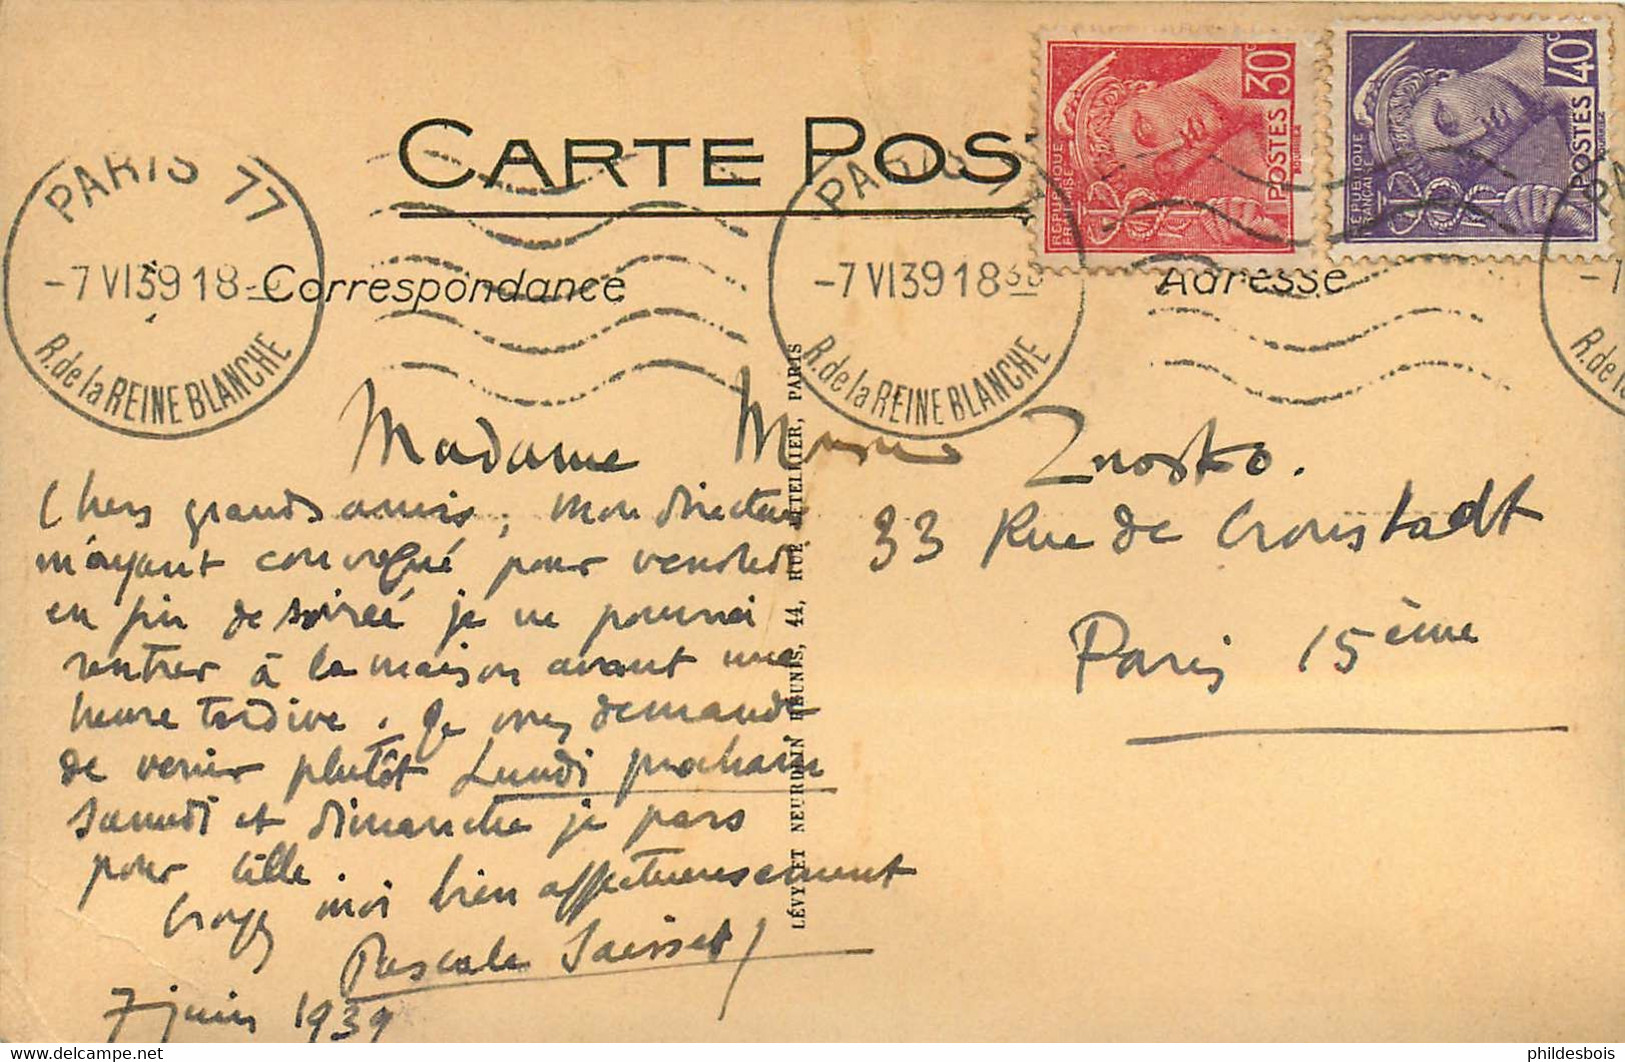 CARTE POS
RÉPUBLIQUE FRANÇAISE
30c
POSTES
RÉPUBLIQUE FRANÇAISE
40c
POSTES
PARIS 77
-7 VI 39 18
R. de la REINE BLANCHE
PARIS
-7 VI 39 18 30
R. de la REINE BLANCHE
PA
-7
R. de la
Correspondance
Adresse
Madame Znosko.
33 Rue de Cronstadt
Paris 15ème
Chers grands amis, mon directeur
m'ayant convoqué pour vendredi
en fin de soirée je ne pourrai
rentrer à la maison avant une
heure tardive. Je vous demande
de venir plutôt Lundi prochain
Samedi et dimanche je pars
pour Lille
Croyez moi bien affectueusement
Pascale Saisset
7 juin 1939
LÉVY ET NEURDEIN RÉUNIS, 44, RUE LETELLIER, PARIS
phildesbois